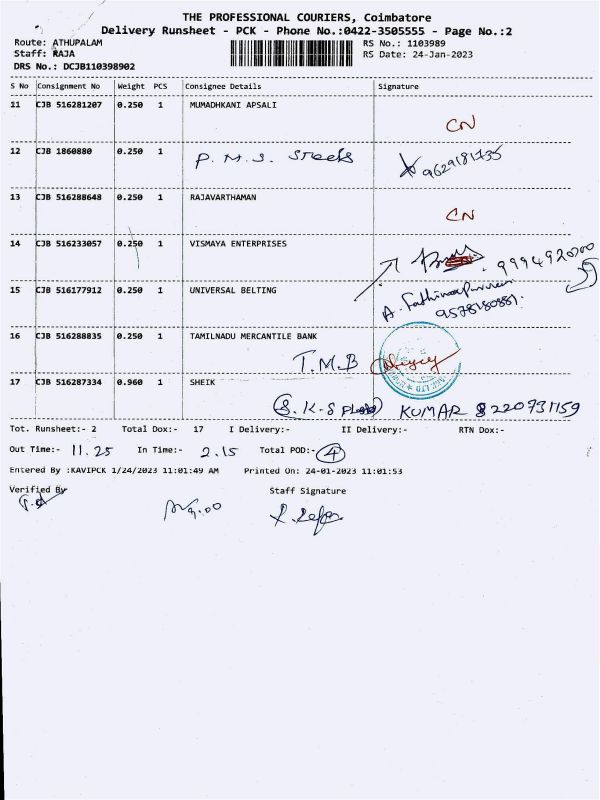 THE PROFESSIONAL COURIERS, Coimbatore
Delivery Runsheet - PCK - Phone No.:0422-3505555 - Page No.:2
Route: ATHUPALAM RS No.: 1103989
Staff: RAJA RS Date: 24-Jan-2023
DRS No.: DCJB110398902
S No Consignment No Weight PCS Consignee Details Signature
11 CJB 516281207 0.250 1 MUMADHKANI APSALI CN
12 CJB 1860880 0.250 1 P.M.S. Steels 9629181735
13 CJB 516288648 0.250 1 RAJAVARTHAMAN CN
14 CJB 516233057 0.250 1 VISMAYA ENTERPRISES
15 CJB 516177912 0.250 1 UNIVERSAL BELTING A.
16 CJB 516288835 0.250 1 TAMILNADU MERCANTILE BANK
T.M.B
17 CJB 516287334 0.960 1 SHEIK
S.K.S KUMAR 8220731159
Tot. Runsheet:- 2 Total Dox:- 17 I Delivery:- II Delivery:- RTN Dox:-
Out Time:- 11.25 In Time:- 2.15 Total POD:- 4
Entered By :KAVIPCK 1/24/2023 11:01:49 AM Printed On: 24-01-2023 11:01:53
Verified By Staff Signature